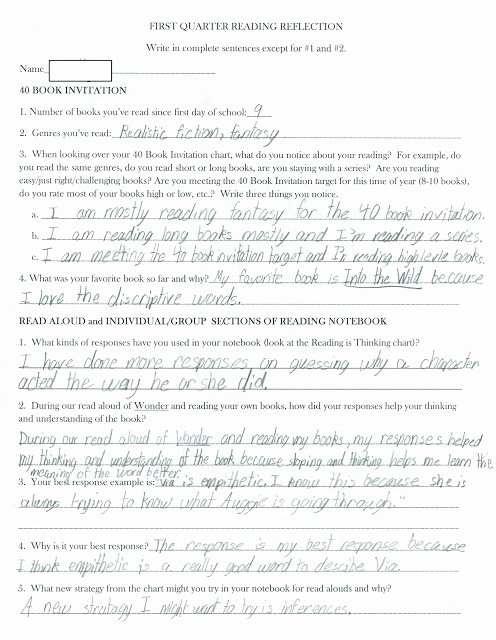 FIRST QUARTER READING REFLECTION
Write in complete sentences except for #1 and #2.
Name
40 BOOK INVITATION
1. Number of books you've read since first day of school: 9
2. Genres you've read: Realistic fiction, fantasy
3. When looking over your 40 Book Invitation chart, what do you notice about your reading? For example, do
you read the same genres, do you read short or long books, are you staying with a series? Are you reading
easy/just right/challenging books? Are you meeting the 40 Book Invitation target for this time of year (8-10 books),
do you rate most of your books high or low, etc.? Write three things you notice.
a. I am mostly reading fantasy for the 40 book invitation.
b. I am reading long books mostly and I'm reading a series.
c. I am meeting the 40 book invitation target and I'm reading high levle books.
4. What was your favorite book so far and why? My favorite book is Into the Wild because
I love the discriptive words.
READ ALOUD and INDIVIDUAL/GROUP SECTIONS OF READING NOTEBOOK
1. What kinds of responses have you used in your notebook (look at the Reading is Thinking chart)?
I have done more responses on guessing why a character
acted the way he or she did.
2. During our read aloud of Wonder and reading your own books, how did your responses help your thinking
and understanding of the book?
During our read aloud of Wonder and reading my books, my responses helped
my thinking and understanding of the book because stoping and thinking helps me learn the
meaning of the word better.
3. Your best response example is: "Via is empithetic. I know this because she is
always trying to know what Auggie is going through."
4. Why is it your best response? The response is my best response because
I think empithetic is a really good word to descibe Via.
5. What new strategy from the chart might you try in your notebook for read alouds and why?
A new stratagy I might want to try is inferences.